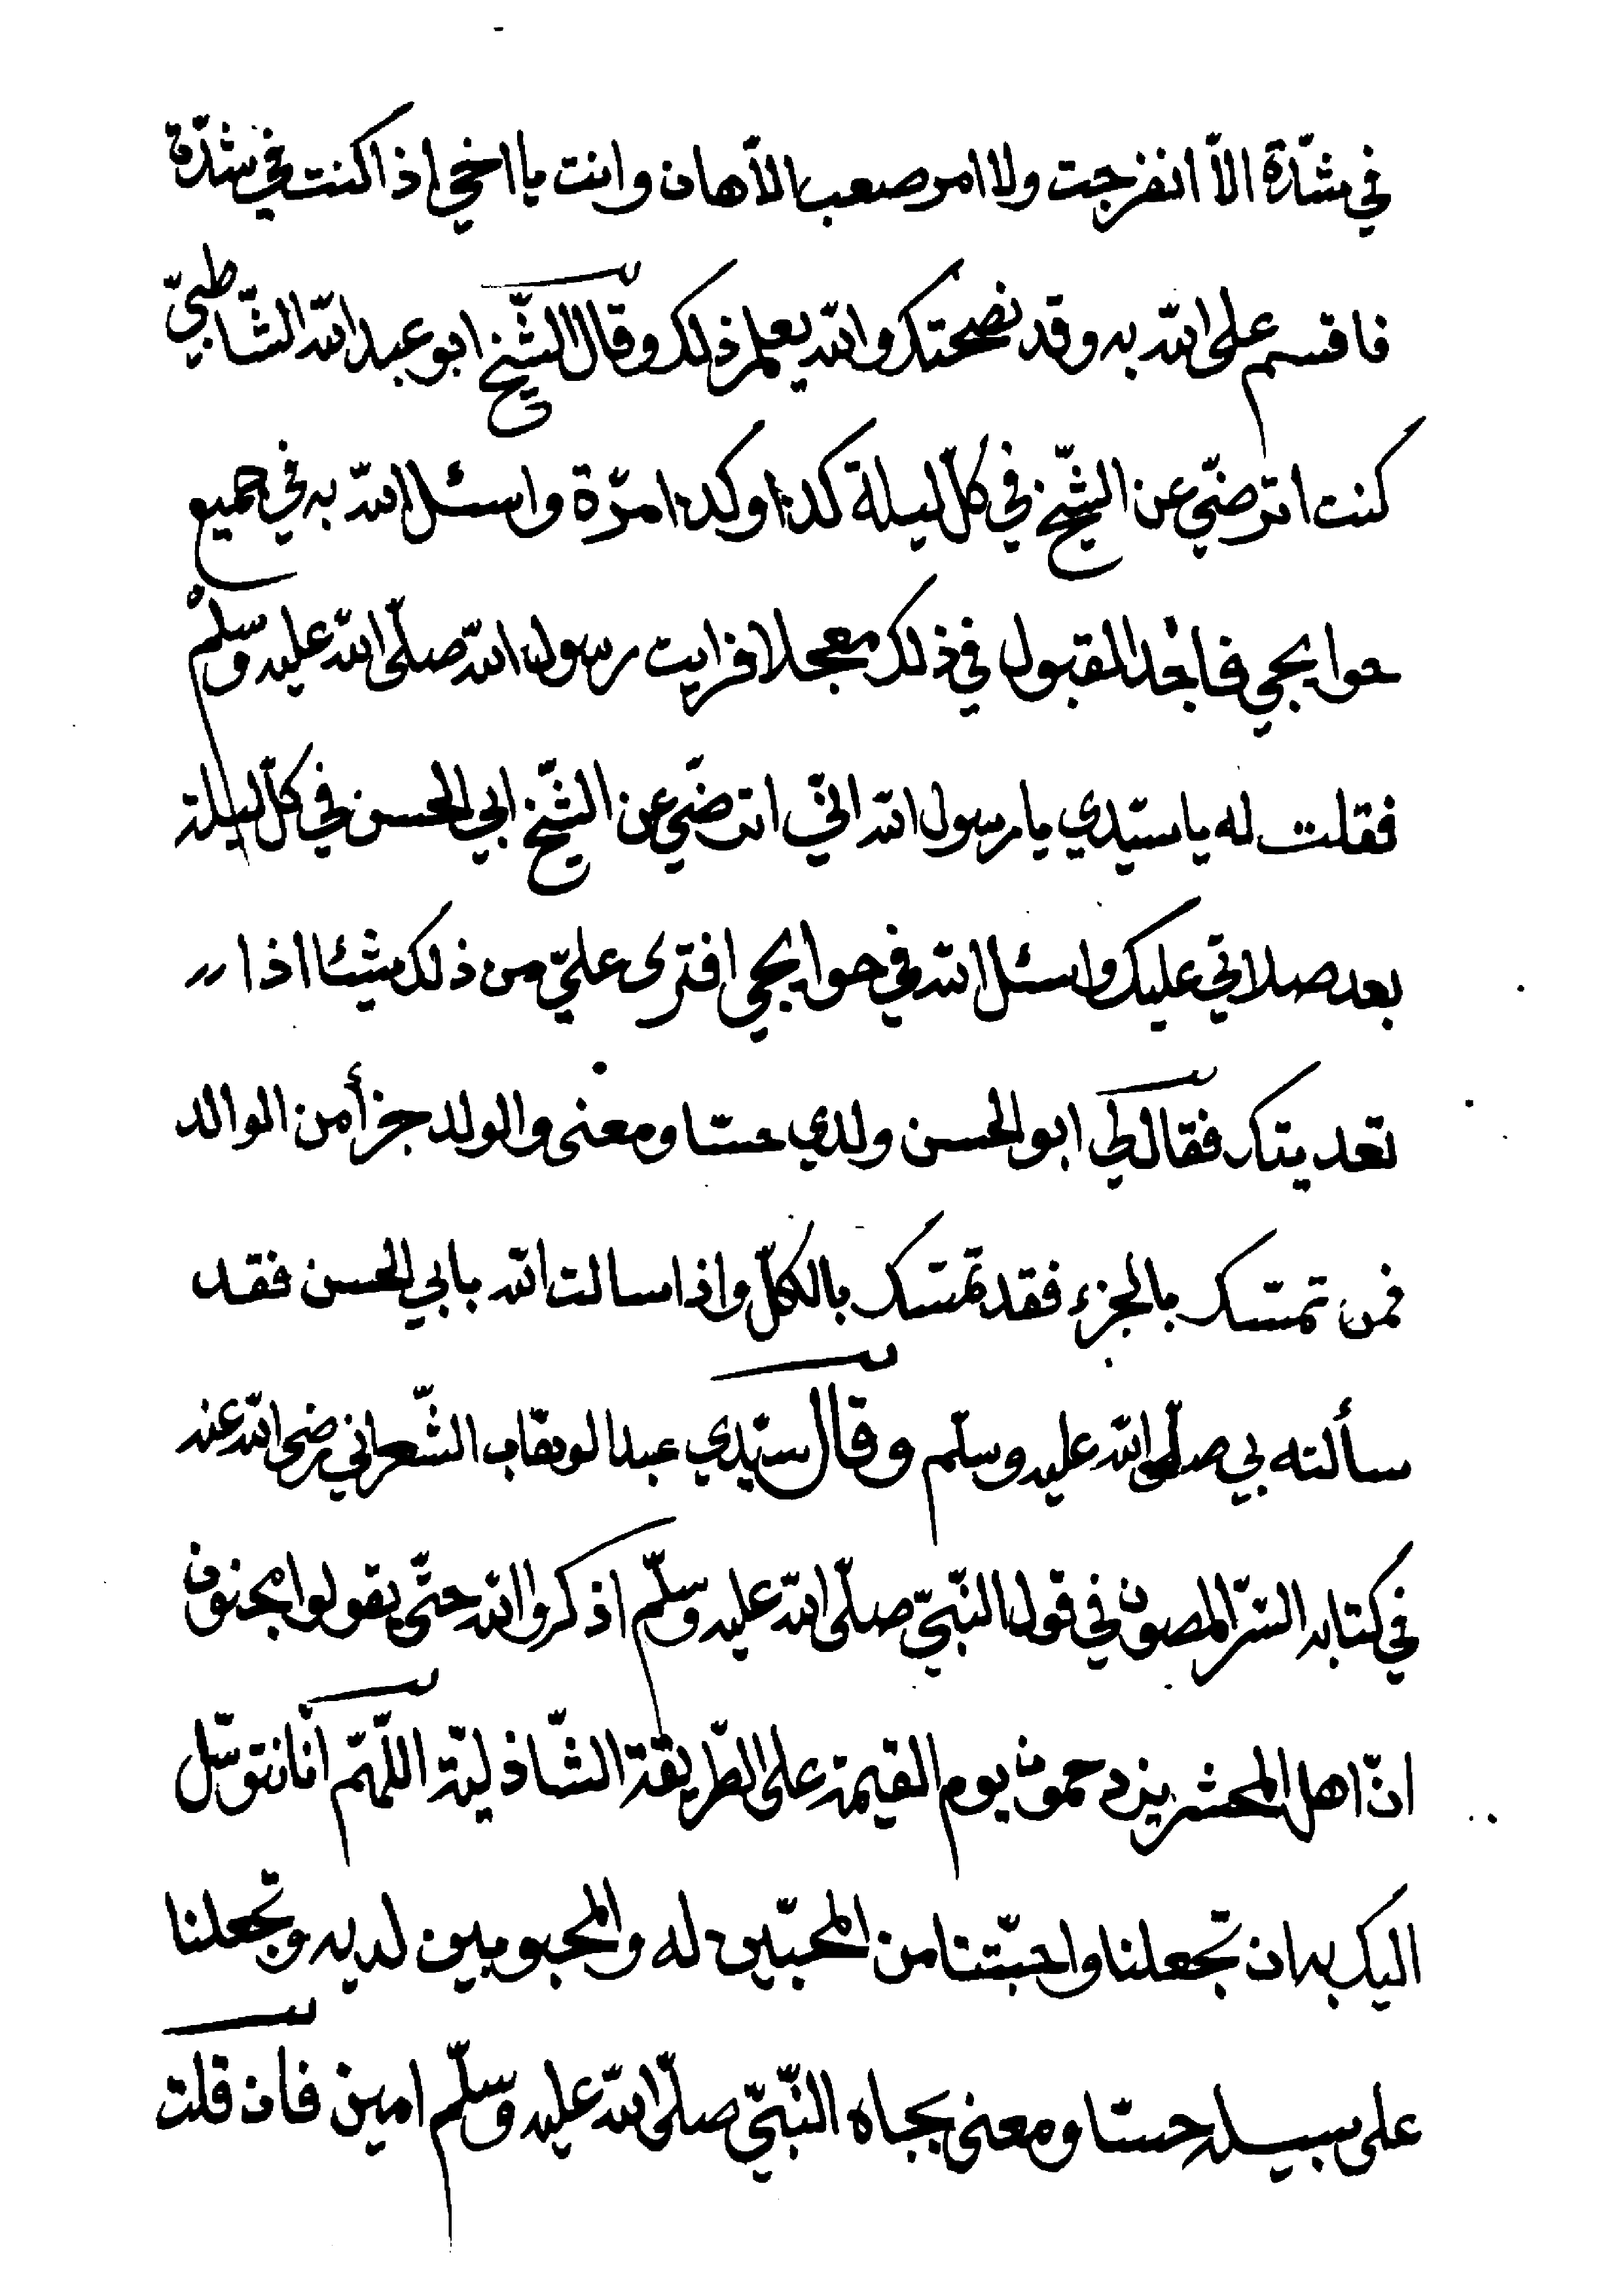 في شدّة الاّ انفرجت ولا امر صعب الاّ هان وانت يا اخي اذا كنت في شدّة
فاقسم على الله به وقد نصحتك والله يعلم ذلك وقال الشّيخ ابو عبد الله الشّاطبيّ
كنت اترضّي عن الشّيخ في كلّ ليلة كذا وكذا مرّة واسئل الله به في جميع
حوايجي فاجد القبول في ذلك معجلا فرايت رسول الله صلّى الله عليه وسلم
فقلت له يا سيّدي يا رسول الله انّي اترضّي عن الشّيخ ابي الحسن في كلّ ليلة
بعد صلاتي عليك واسئل الله في حوايجي افترى عليّ من ذلك شيئا اذا
تعديتك فقال لي ابو الحسن ولدي حسّا ومعنى والولد جزأ من الوالد
فمن تمسّك بالجزء فقد تمسّك بالكلّ واذا سالت الله بابي الحسن فقد
سألته بي صلّى الله عليه وسلّم وقال سيّدي عبد الوهّاب الشّعراني رضي الله عنه
في كتابه السّرّ المصون في قول النّبيّ صلّى الله عليه وسلّم اذكروا الله حتّى يقولوا مجنون
انّ اهل المحشر يزدحمون يوم القيمة على الطّريقة الشّاذليّة اللّهمّ انّا نتوسّل
اليك به ان تجعلنا واحبّتنا من المحبّين له والمحبوبين لديه وتجعلنا
على سبيله حسّا ومعنى بجاه النّبيّ صلّى الله عليه وسلّم امين فان قلت